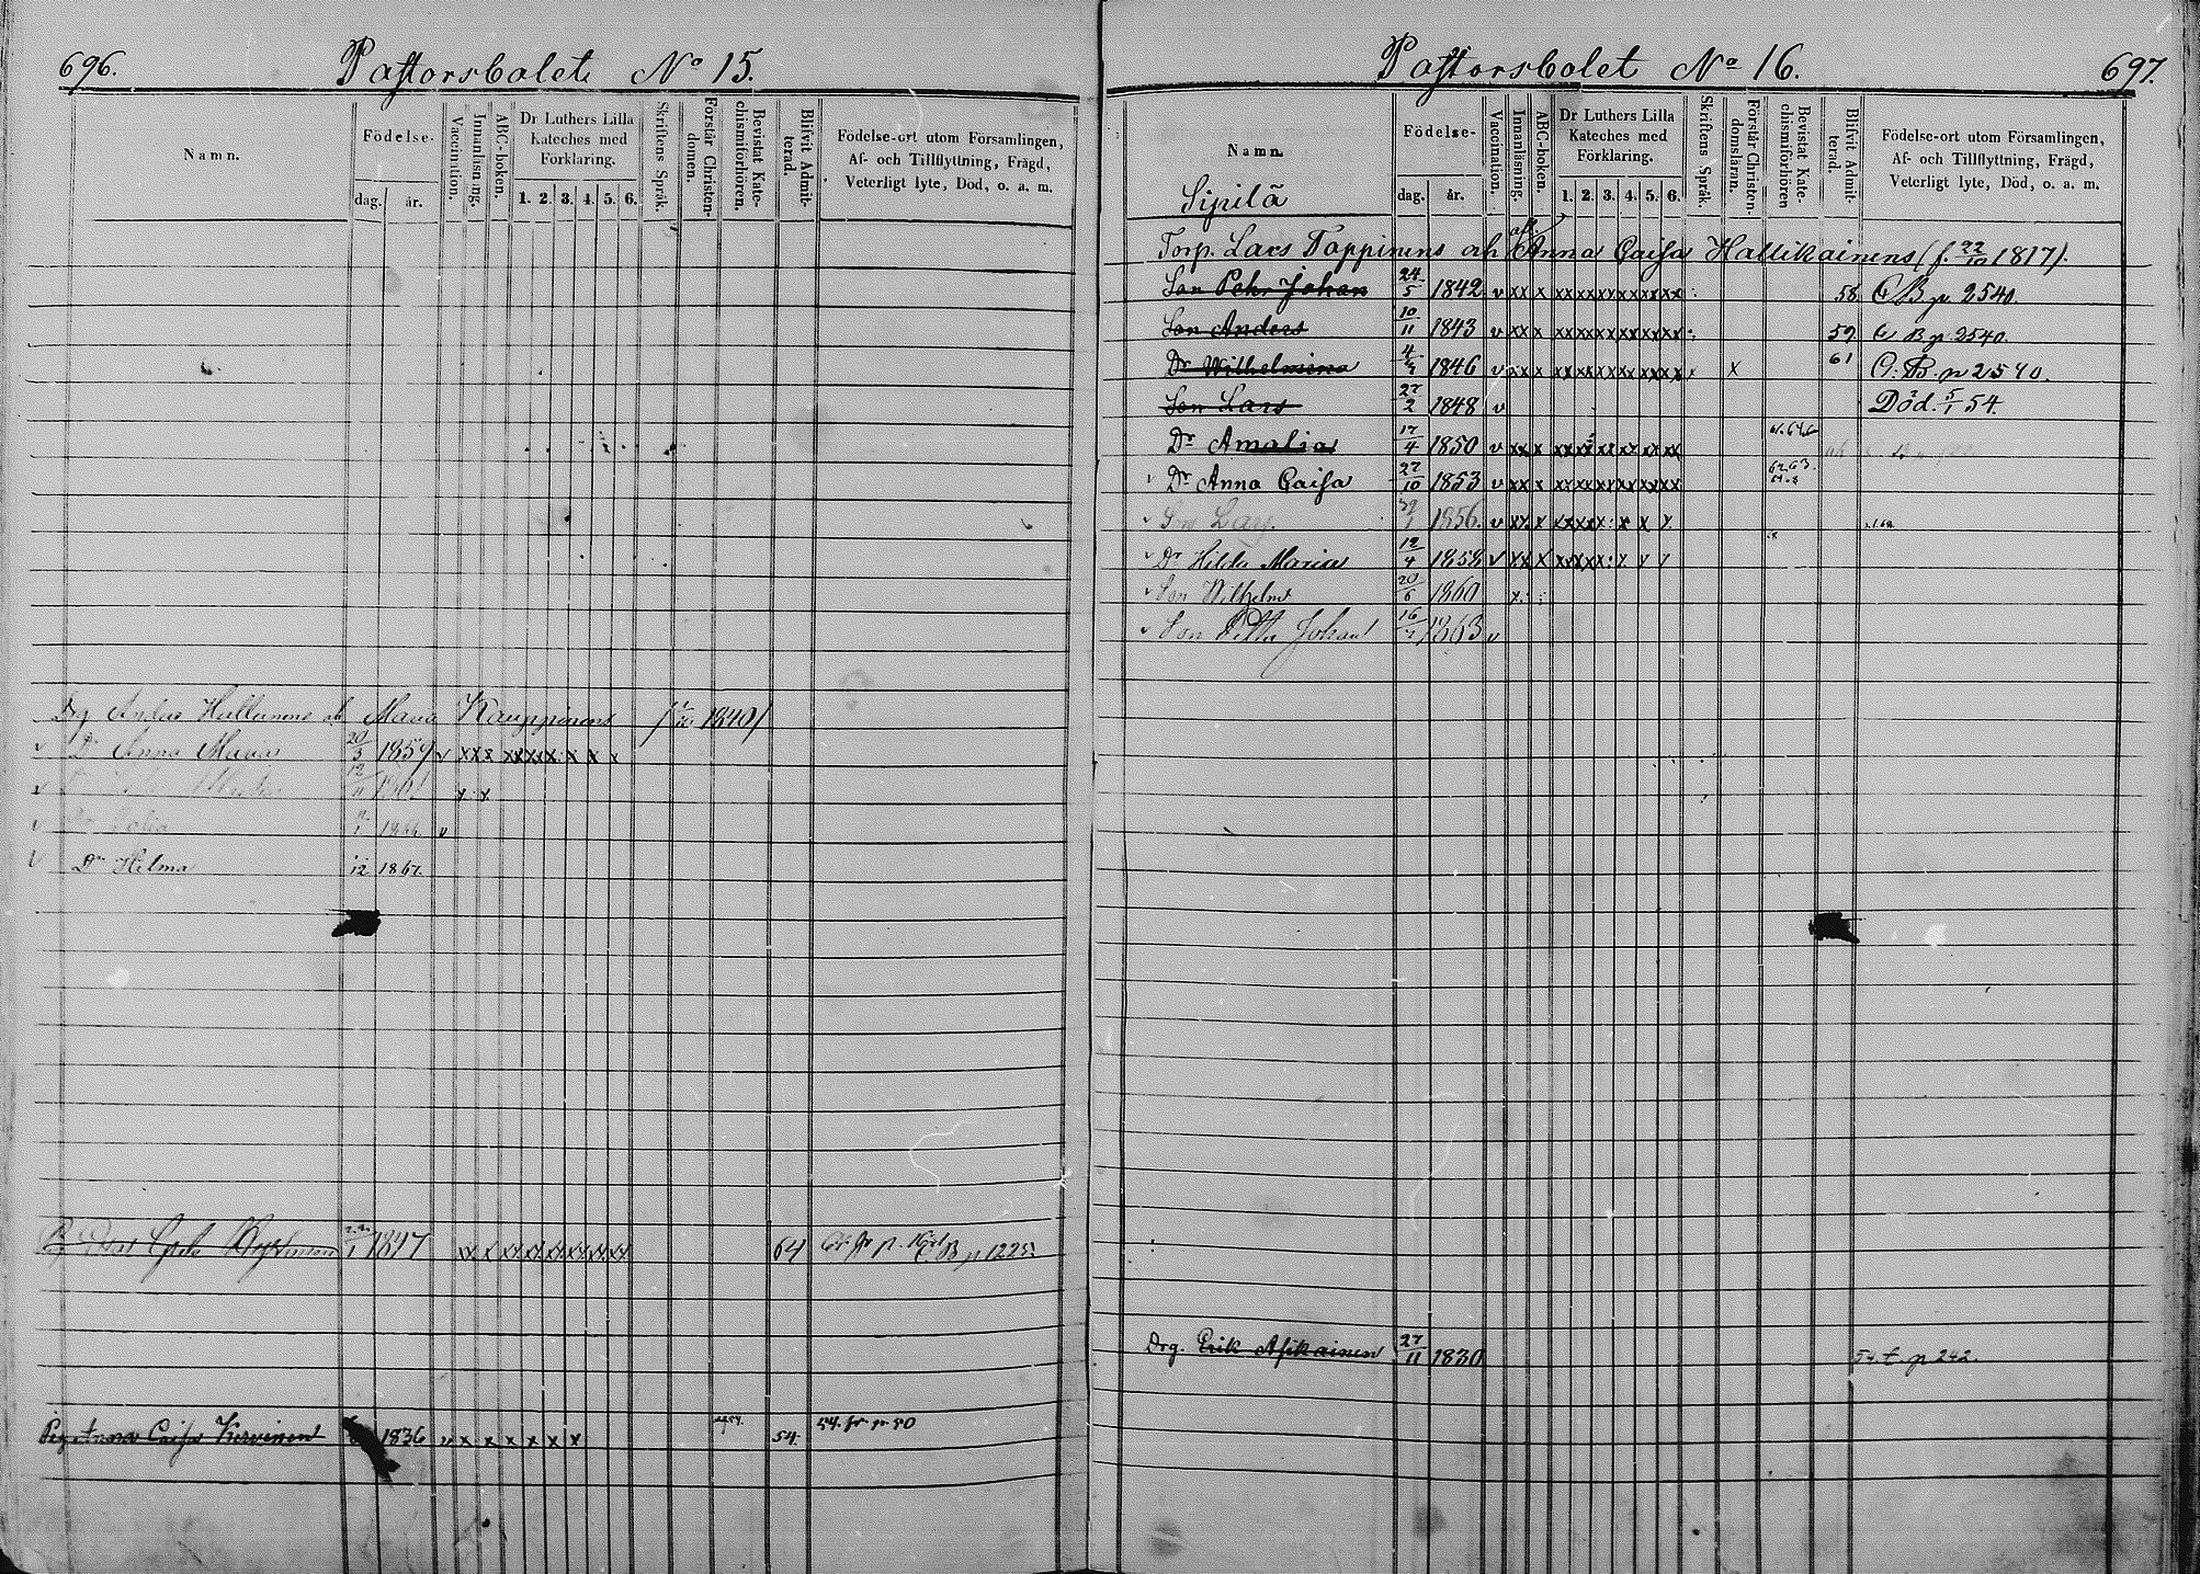 696.
Pastorsbolet No 15.
Namn.
Födelse-
dag. år.
Vaccination.
Innanläsning.
ABC-boken.
Dr Luthers Lilla Kateches med Förklaring.
1. 2. 3. 4. 5. 6.
Skriftens Språk.
Förstår Christen-domen.
Bevistat Kate-chismiförhören.
Blifvit Admit-terad.
Födelse-ort utom Församlingen, Af- och Tillflyttning, Frägd, Veterligt lyte, Död, o. a. m.
Drg Maria Kauppinens 1840
v Dr Anna Maria 20/3 1859 v x x x x x x x x x x x
v 12/11 1861 x x
v v
v Dr Hilma 12 1867.
1847 xx x xx xx xx xx xx xx 64 C.B p 1225.
Pig Anna Caisa Kervinen 1836 v x x x x x x 54. 54. fr p 50
697.
Pastorsbolet No 16.
Namn.
Födelse-
dag. år.
Vaccination.
Innanläsning.
ABC-boken.
Dr Luthers Lilla Kateches med Förklaring.
1. 2. 3. 4. 5. 6.
Skriftens Språk.
Förstår Christen-domsläran.
Bevistat Kate-chismiförhören
Blifvit Admit-terad.
Födelse-ort utom Församlingen, Af- och Tillflyttning, Frägd, Veterligt lyte, Död, o. a. m.
Sipilä
Torp. Lars Toppinens och Anna Caisa Hallikainens (f. 22/10 1817).
Son Pehr Johan 24/5 1842 v xx x xx xx xx xx xx xx 58 C B p. 2540.
Son Anders 10/11 1843 v xx x xx xx xx xx xx xx 59 C B p. 2540.
Dr Wilhelmina 1846 v xx x xx xx xx xx xx xx x 61 C. B. p 2540.
Son Lars 27/2 1848 v Död. 5/1 54.
Dr Amalia 17/4 1850 v xx x xx xx xx xx xx xx
v Dr Anna Caisa 27/10 1853 v xx x xx xx xx xx xx xx 62.63.
v Son Lars 1856 v xx x xx xx x x x x
v Dr Hilda Maria 12/4 1858 v xx x xx xx x x v v
v Son Wilhelm 20/6 1860 x
v Son Petter Johan 1863 v
Drg. Erik Asikainen 27/11 1830 54. t. p 242.